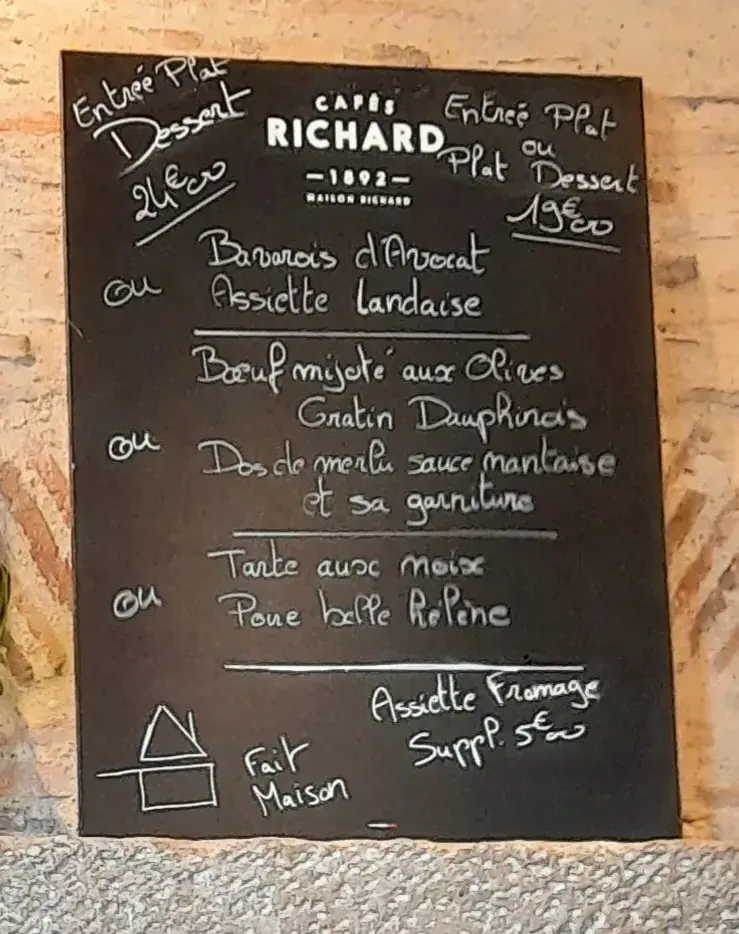 Entrée Plat
Dessert
24€00
CAFÉS
RICHARD
—1892—
MAISON RICHARD
Entreé Plat
ou
Plat Dessert
19€00
Bavarois d'Avocat
ou
Assiette Landaise
Bœuf mijoté aux Olives
Gratin Dauphinois
ou
Dos de merlu sauce nantaise
et sa garniture
Tarte aux noix
ou
Poire belle Hélène
Assiette Fromage
Suppl. 5€00
Fait
Maison